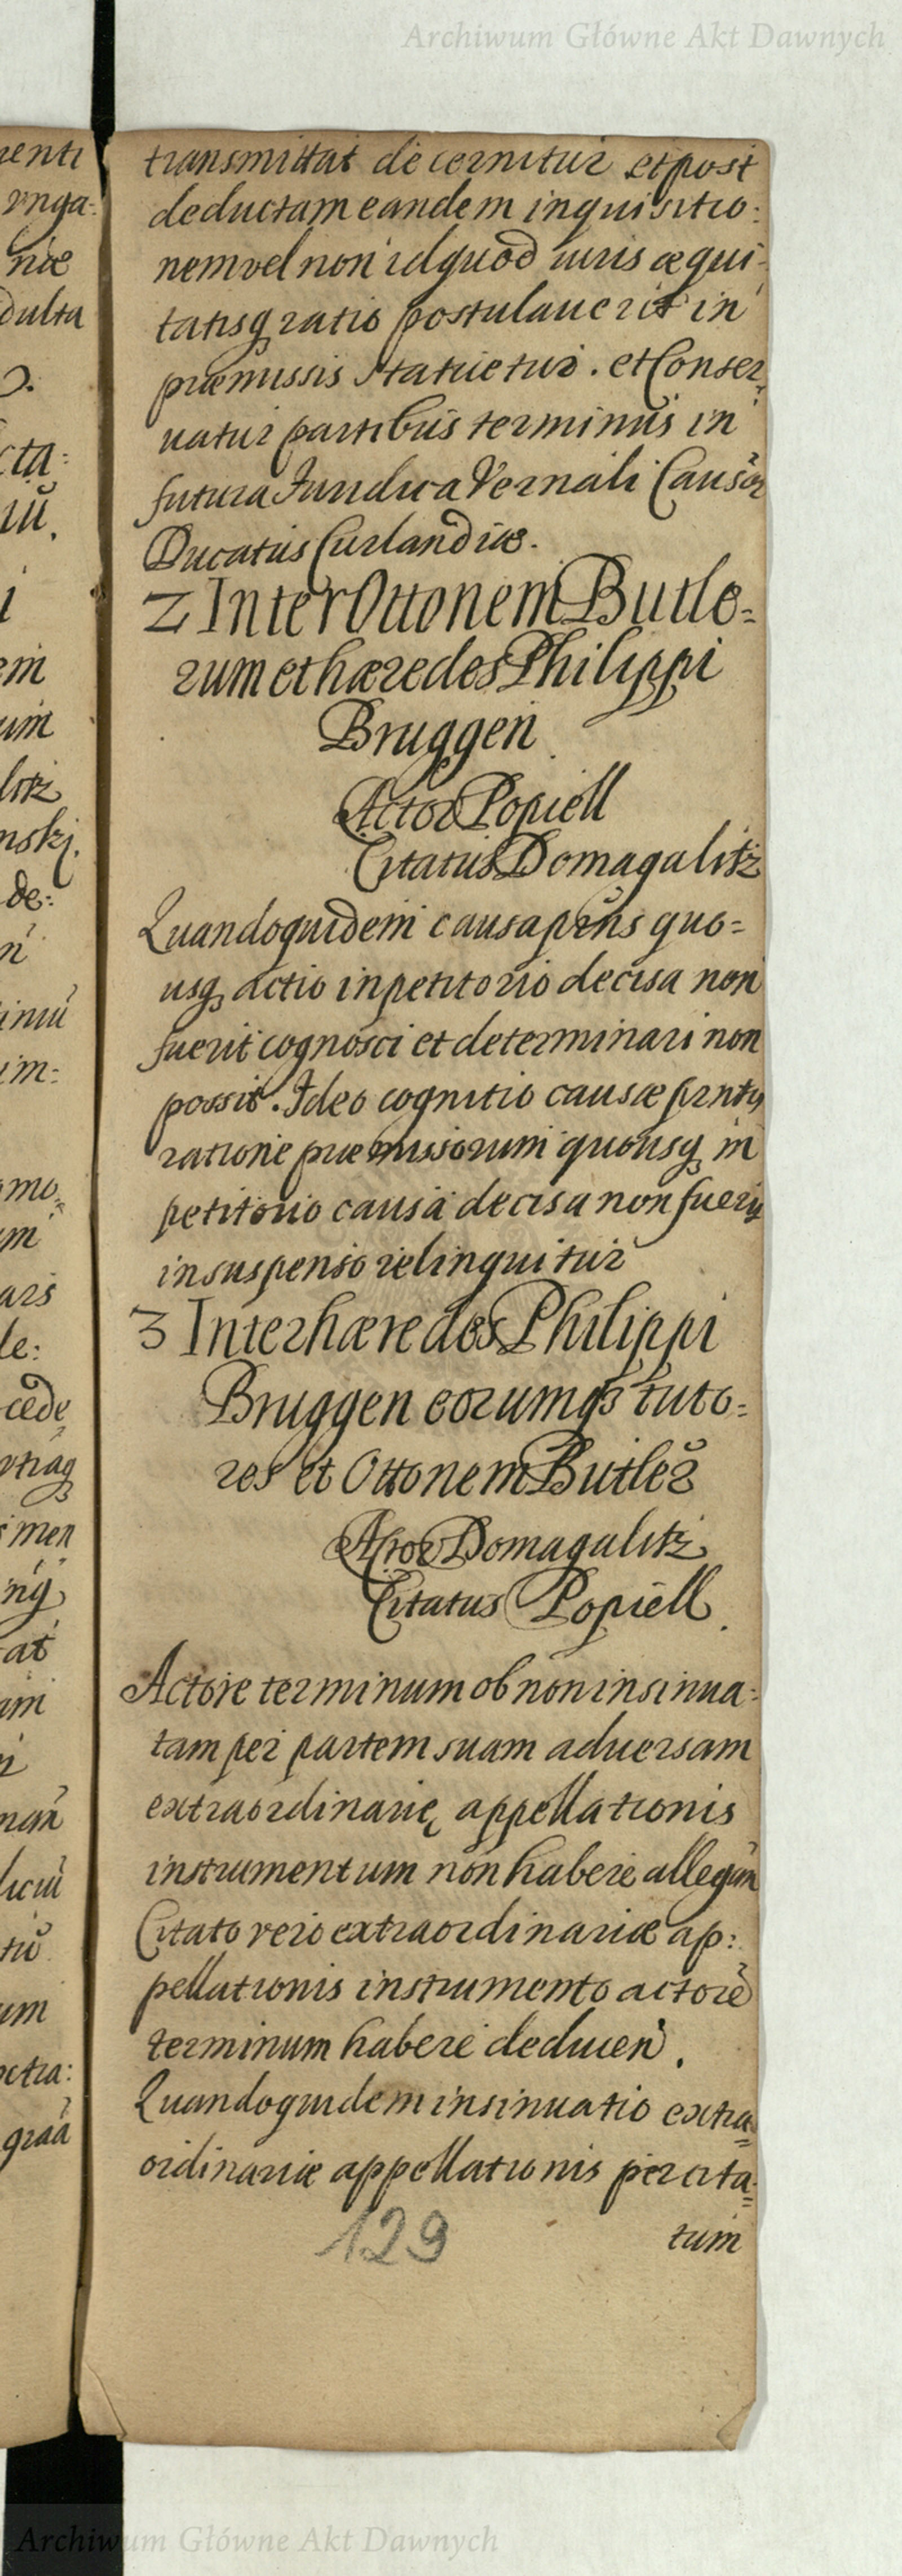 Archiwum Główne Akt Dawnych
transmittat decernitur et post
deductam eandem inquisitio:
nem vel non id quod iuris æqui-
tatisq ratio postulauerit in
præmissis statuetur. et Conser
uatur partibus terminus in
futura Iuridica Vernali Causar
Ducatus Curlandiæ.
2 Inter Ottonem Butle=
rum et hæredes Philippi
Bruggen
Actor Popiell
Citatus Domagalitz
Quandoquidem causa pñs quo=
usq actio in petitorio decisa non
fuerit cognosci et determinari non
possit. Ideo cognitio causæ prntis
ratione præmissorum quousq in
petitorio causa decisa non fuerit
in suspenso relinquitur
3 Inter hæredes Philippi
Bruggen eorumq tuto=
res et Ottonem Butler
Actor Domagalitz
Citatus Popiell.
Actore terminum ob non insinua:
tam per partem suam aduersam
extraordinariæ appellationis
instrumentum non habere allegan
Citato vero extraordinariæ ap:
pellationis instrumento actore
terminum habere deducen.
Quandoquidem insinuatio extra=
ordinariæ appellationis per cita=
tum
129
Archiwum Główne Akt Dawnych